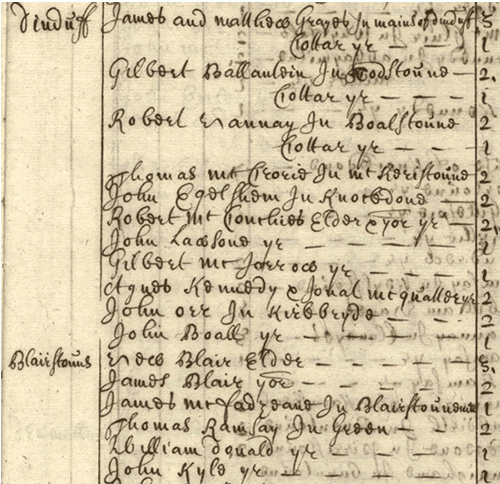 Dinduff James and mattheo Grayes In mains of dinduff 3
Cottar yr — — — 1
Gilbert Ballantein In Todstoune — 2
Cottar yr — — — 1
Robert Hannay In Boalstoune 2
Cottar yr — — 1
Thomas mc Crorie In mc Keristoune 2
John Egelshem In Knockdone — 2
Robert mc Conchies Elder & yor yr — 2
John Lawsone yr — — — — — 1
Gilbert mc Jarrow yr — — — 1
Agnes Kennedy & Jonat mcqualter yr 2
John orr In Kirkbryde — — — 2
John Boall yr — — — — — 1
Blairstouns Hew Blair Elder — — — — 3
James Blair yor — — — — — 2
James mc fadzeane In Blairstoune 1
Thomas Ramsay In Green — 2
William donald yr — — — 1
John Kyle yr — — — — 1